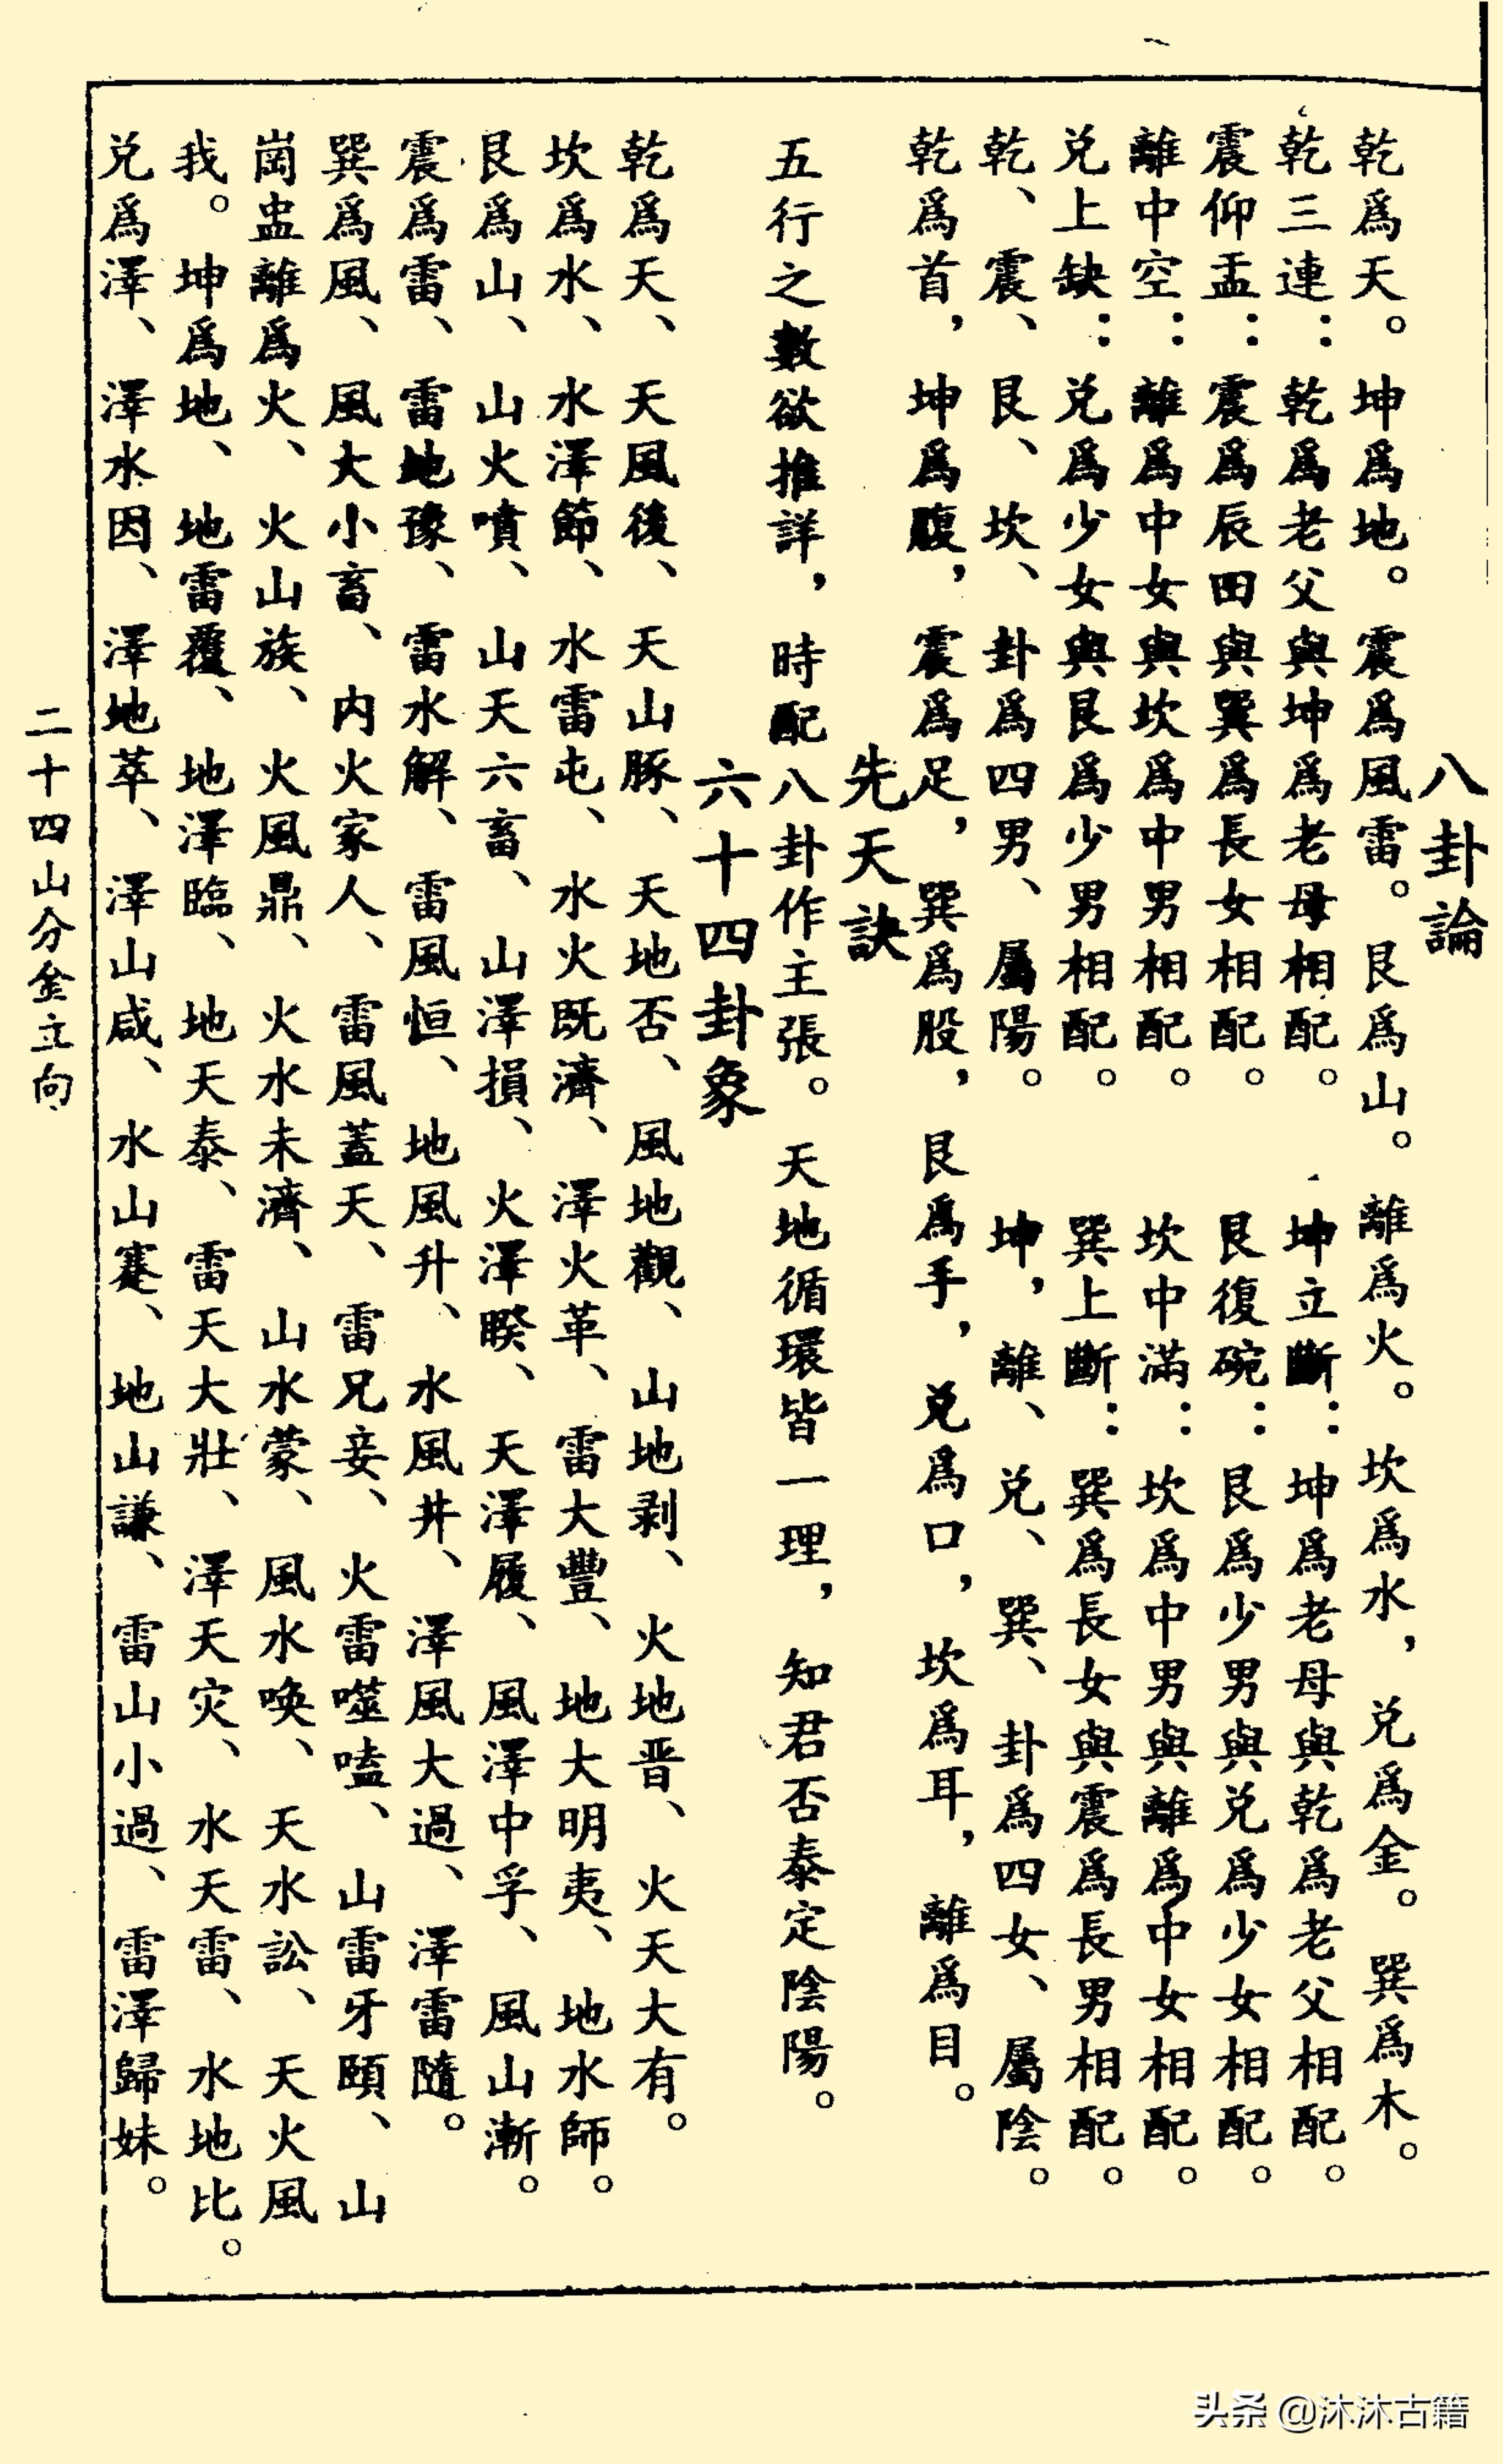 八卦論
乾爲天。坤爲地。震爲風雷。艮爲山。離爲火。坎爲水，兑爲金。巽爲木。
乾三連：乾爲老父與坤爲老母相配。 坤立斷：坤爲老母與乾爲老父相配。
震仰盂：震爲辰田與巽爲長女相配。 艮復碗：艮爲少男與兑爲少女相配。
離中空：離爲中女與坎爲中男相配。 坎中滿：坎爲中男與離爲中女相配。
兑上缺：兑爲少女與艮爲少男相配。 巽上斷：巽爲長女與震爲長男相配。
乾、震、艮、坎、卦爲四男、屬陽。 坤，離、兑、巽、卦爲四女、屬陰。
乾爲首，坤爲腹，震爲足，巽爲股，艮爲手，兑爲口，坎爲耳，離爲目。
先天訣
五行之數欲推詳，時配八卦作主張。天地循環皆一理，知君否泰定陰陽。
六十四卦象
乾爲天、天風後、天山豚、天地否、風地觀、山地剥、火地晋、火天大有。
坎爲水、水澤節、水雷屯、水火既濟、澤火革、雷大豐、地大明夷、地水師。
艮爲山、山火噴、山天六畜、山澤損、火澤睽、天澤履、風澤中孚、風山漸。
震爲雷、雷地豫、雷水解、雷風恒、地風升、水風井、澤風大過、澤雷隨。
巽爲風、風大小畜、内火家人、雷風蓋天、雷兄妄、火雷噬嗑、山雷牙頤、山
崗盅離爲火、火山族、火風鼎、火水未濟、山水蒙、風水唤、天水訟、天火風
我。坤爲地、地雷覆、地澤臨、地天泰、雷天大壯、澤天灾、水天雷、水地比。
兑爲澤、澤水因、澤地萃、澤山咸、水山蹇、地山謙、雷山小過、雷澤歸妹。
二十四山分金立向
头条@沐沐古籍